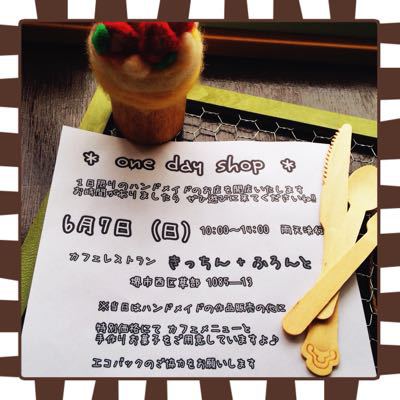 * one day shop *
1日限りのハンドメイドのお店を開店いたします
お時間がありましたら ぜひ遊びに来てくださいね!!
6月7日 (日) 10:00~14:00 雨天決行
カフェレストラン きっちん+ふろんと
堺市西区草部 1085―13
※当日はハンドメイドの作品販売の他に
特別価格にて カフェメニューと
手作りお菓子をご用意していますよ♪
エコバックのご協力をお願いします